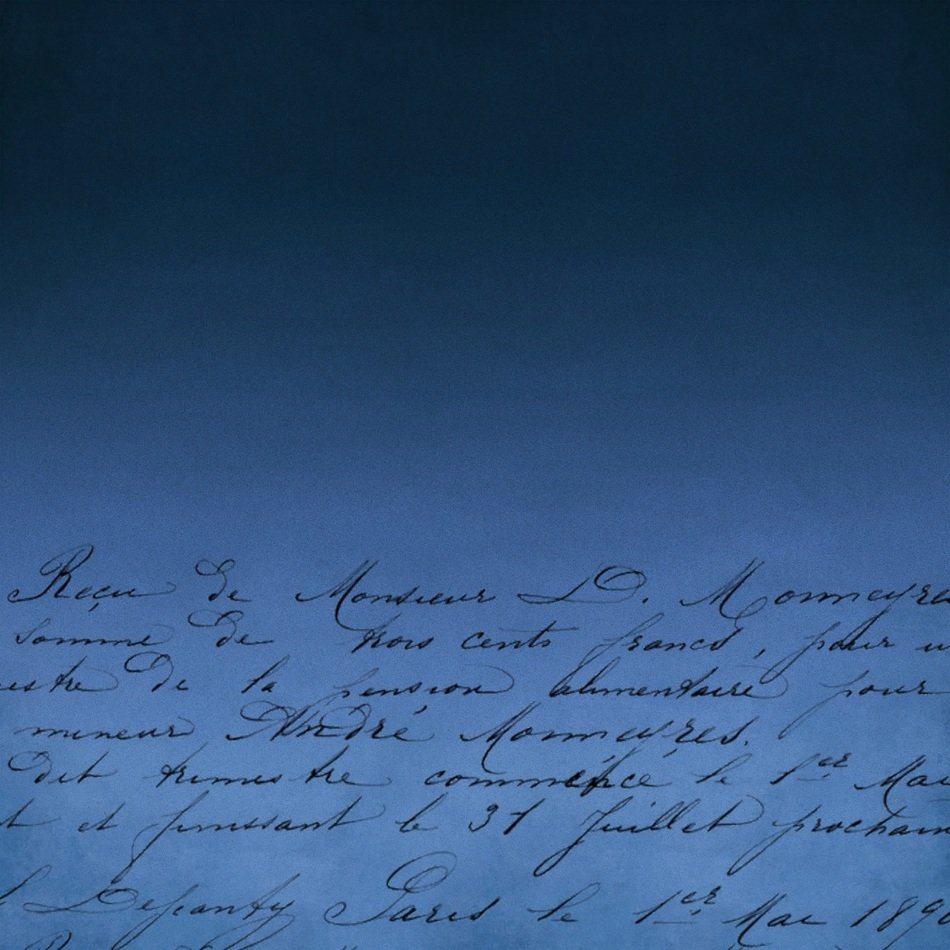 Reçu de Monsieur D. Monneyre
somme de trois cents francs, pour u
estre de la pension alimentaire pour
mineur André Monneyres.
dit trimestre commencé le 1er Mai
t et finissant le 31 Juillet prochain
Paris le 1er Mai 189